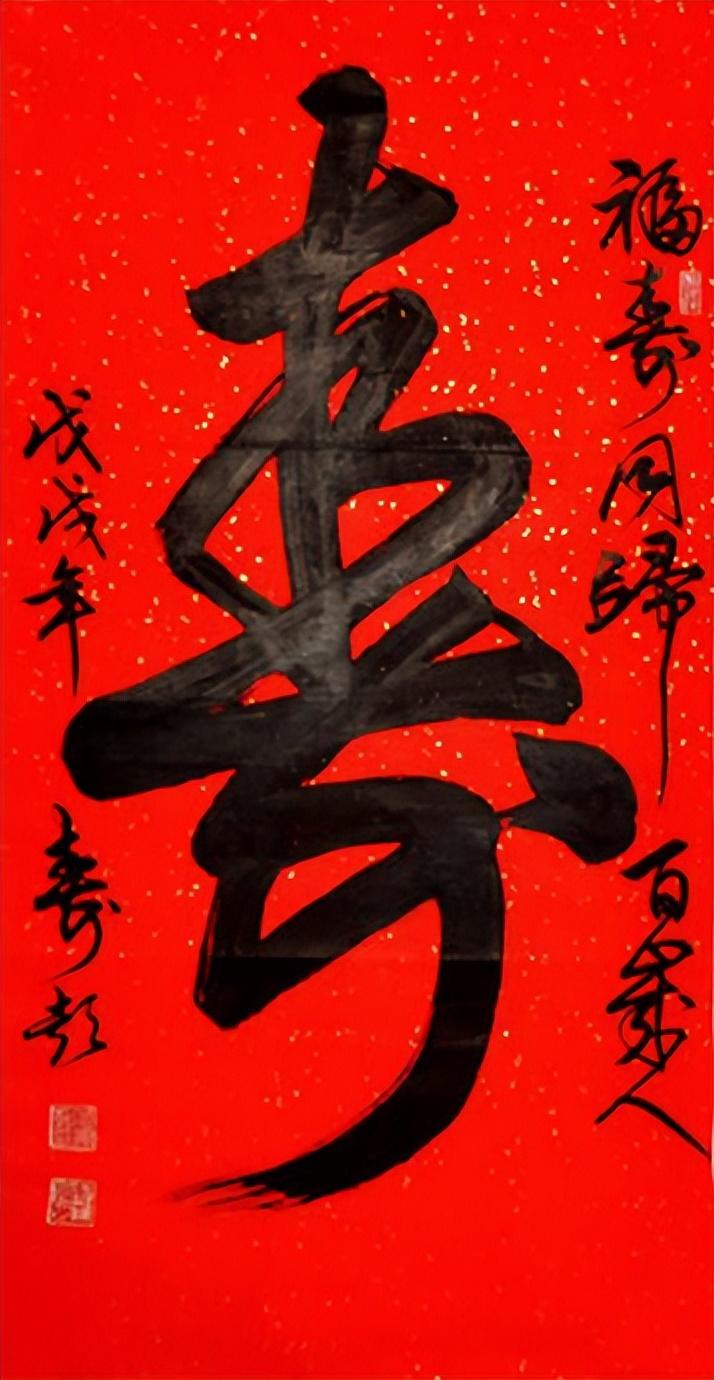 福寿同歸百歲人
寿
戊戌年
寿彭